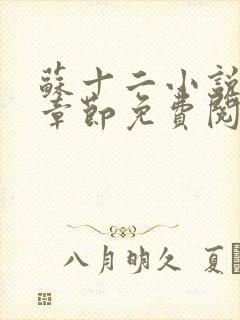 蘇十二小說
章節免費閱
八月明久 夏